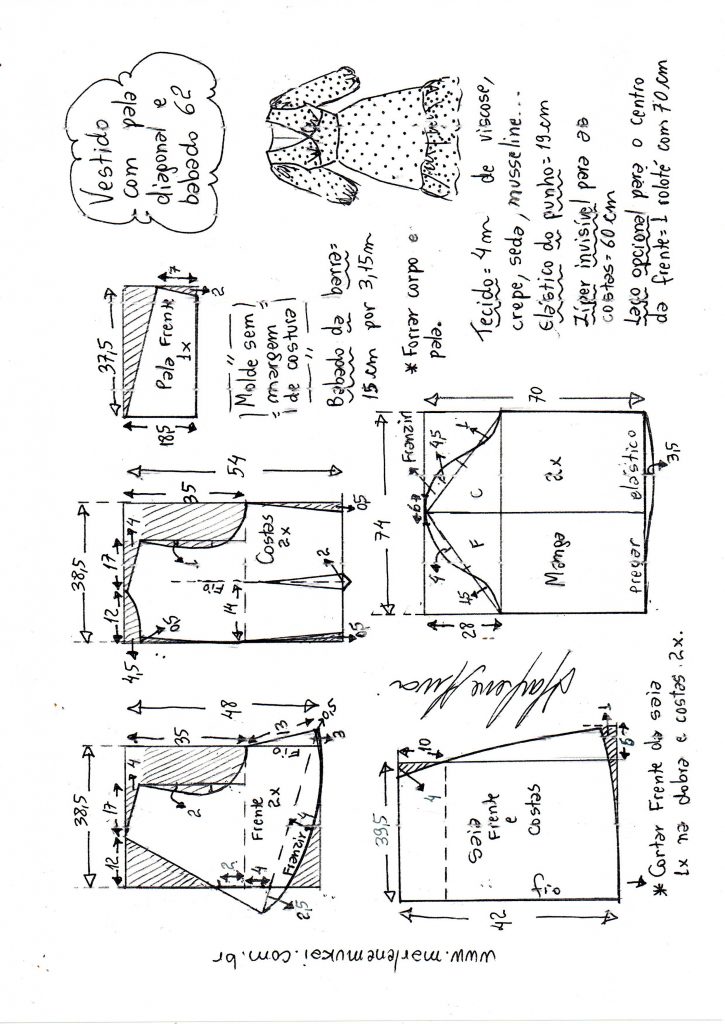 Vestido
com pala
diagonal e
babado 62
37,5
7
2
18,5
Pala Frente
1x
Molde sem
margem
de costura
Babado da barra=
15 cm por 3,15m
* Forrar corpo e
pala.
Tecido= 4m de viscose,
crepe, seda, musseline...
Elástico do punho= 19cm
Zíper invisível para as
costas= 60 cm
Laço opcional para o centro
da frente= 1 roloté com 70 cm
38,5
12
17
4
4,5
0,5
1
35
54
Fio
14
Costas
2x
2
0,5
0,5
38,5
12
17
4
2
35
48
Frente
2x
Fio
13
0,5
3
2
4
4
Franzir
2,5
74
6
Franzir
4
4,5
1
1,5
28
F
C
70
Manga
2x
pregar elástico
3,5
39,5
10
4
4
Saia
Frente
e
Costas
fio
42
1
6
* Cortar Frente da saia
1x na dobra e costas 2x.
Marlene Mukai
www.marlenemukai.com.br